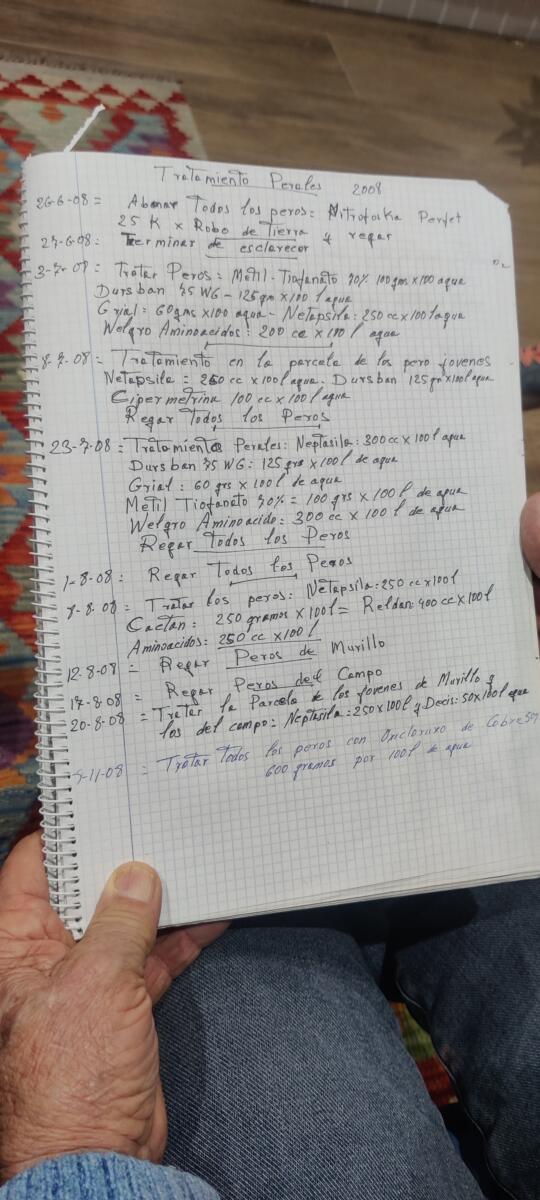 Tratamiento Perales 2008
26-6-08 = Abonar Todos los peros: Nitrofoska Perfet
25 K x Robo de Tierra y regar
27-6-08: Terminar de esclarecer
3-7-08 = Tratar Peros: Métil-Tiofanato 70% 100 gms x 100 agua
Dursban 75 WG - 125 gm x 100 l agua
Grial: 60 gms x 100 agua - Netapsila: 250 cc x 100 l agua
Welgro Aminoacidos: 200 cc x 100 l agua
8-7-08 = Tratamiento en la parcela de los pero jovenes
Netapsila = 250 cc x 100 l agua. Dursban 125 gm x 100 l agua
Cipermetrina 100 cc x 100 l agua
Regar Todos los Peros
23-7-08 = Tratamiento Perales: Neptasila: 300 cc x 100 l agua
Dursban 75 WG: 125 grs x 100 l de agua
Grial: 60 grs x 100 l de agua
Métil Tiofanato 70% = 100 grs x 100 l de agua
Welgro Aminoacido: 300 cc x 100 l de agua
Regar Todos los Peros
1-8-08: Regar Todos los Peros
7-8-08: Tratar los peros: Netapsila: 250 cc x 100 l
Captan: 250 gramos x 100 l = Reldan: 400 cc x 100 l
Aminoacidos: 250 cc x 100 l
12-8-08 = Regar Peros de Murillo
17-8-08 = Regar Peros del Campo
20-8-08 = Tratar la Parcela de los jovenes de Murillo y
los del campo: Neptasila: 250 x 100 l y Decis: 50 x 100 l agua
5-11-08 = Tratar Todos los peros con Oxicloruro de Cobre 50%
600 gramos por 100 l de agua